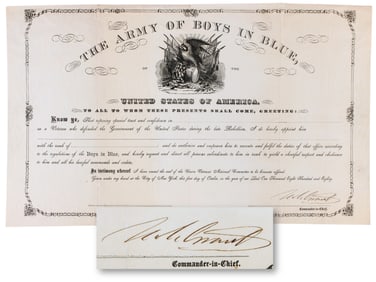 THE ARMY OF BOYS IN BLUE,
OF THE
UNITED STATES OF AMERICA.
TO ALL TO WHOM THESE PRESENTS SHALL COME, GREETING:
Know ye, That reposing special trust and confidence in
as a Veteran who defended the Government of the United States during the late Rebellion, I do hereby appoint him
with the rank of and do authorize and empower him to execute and fulfil the duties of that office according
to the regulations of the Boys in Blue, and hereby request and direct all persons subordinate to him in rank to yield a cheerful respect and obedience
to him and all his lawful commands and orders.
In testimony whereof I have caused the seal of the Union Veterans National Committee to be hereunto affixed.
Given under my hand at the City of New York the first day of October, in the year of our Lord One Thousand Eight Hundred and Eighty.
Commander-in-Chief.
Commander-in-Chief.